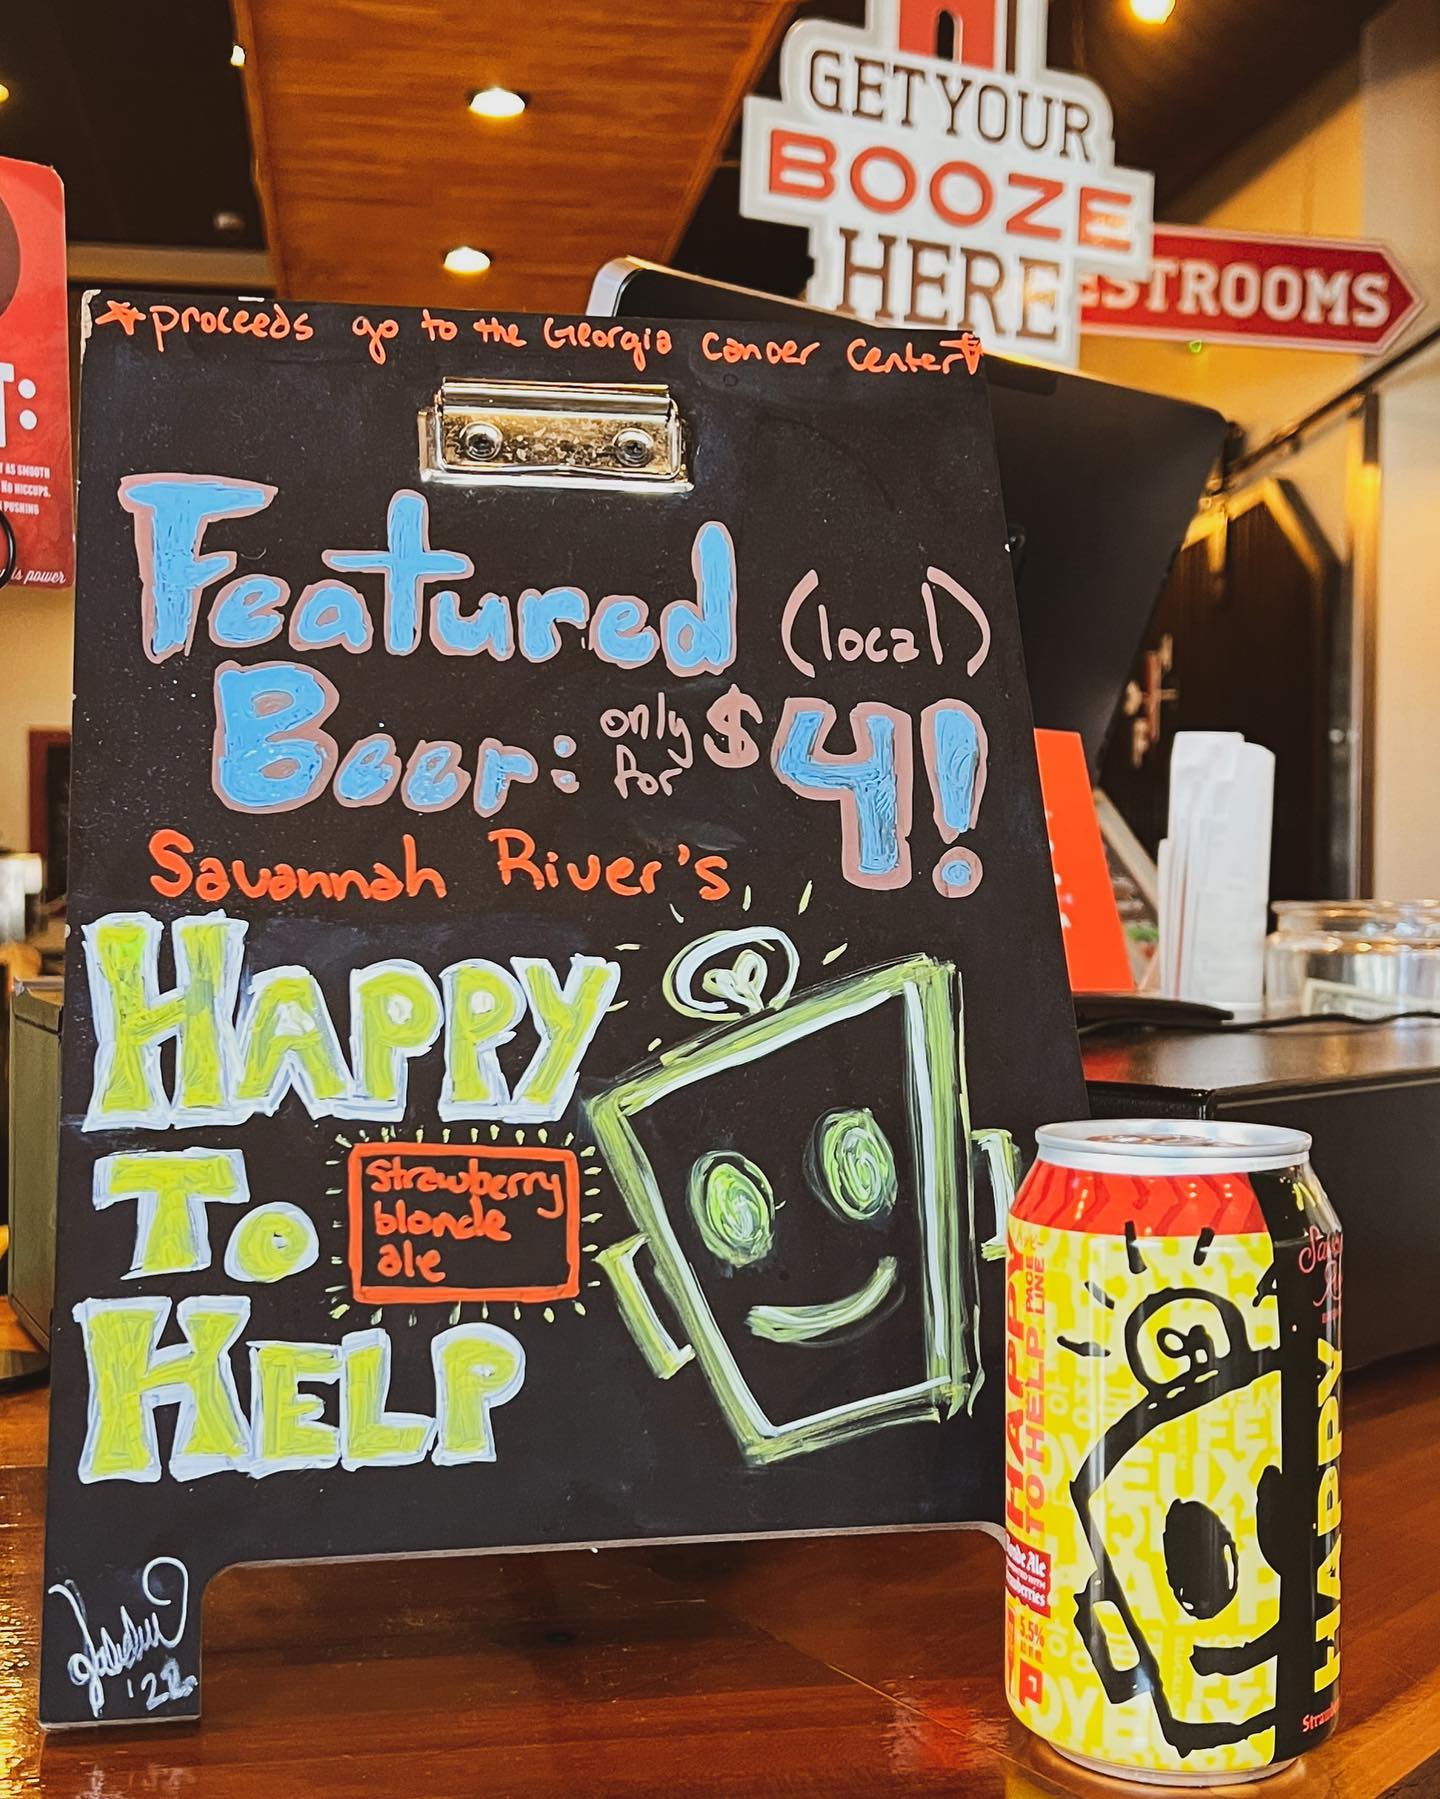 GET YOUR
BOOZE
HERE
RESTROOMS
T:
T AS SMOOTH
NO HICCUPS.
PUSHING
is power
*proceeds go to the Georgia Cancer Center*
Featured (local)
Beer: only for $4!
Savannah River's
HAPPY
TO
HELP
strawberry
blonde
ale
'22
HAPPY
TO HELP
PACE
LINE
Blonde Ale
Strawberries
5.5%
HAPPY